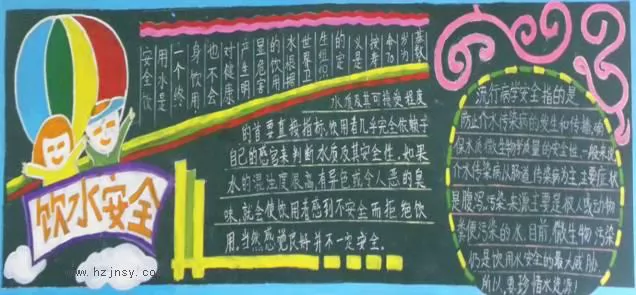 饮水安全
安全饮
用水是
一个终
身饮用
也不会
对健康
产生明
显危害
的饮用
水根据
世界卫
生组织
的定
义是
按寿
命70
岁为
基数
水质及其可接受程度
的首要直接指标,饮用者几乎完全依赖于
自己的感官来判断水质及其安全性。如果
水的混浊度很高,有异色或令人恶的臭
味,就会使饮用者感到不安全而拒绝饮
用.当然感觉良好并不一定安全.
流行病学安全指的是
防止介水污染病的发生和传播,确
保水质微生物学质量的安全性,一般来说
介水传染病以肠道传染病为主,主要症状
是腹泻.污染来源主要是被人或动物
粪便污染的水.目前,微生物污染
仍是饮用水安全的最大威胁,
所以,要珍惜水资源!
www.hzjnsy.co